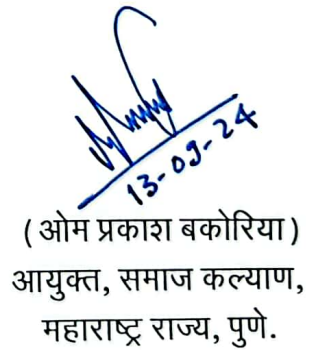 13-09-24
(ओम प्रकाश बकोरिया)
आयुक्त, समाज कल्याण,
महाराष्ट्र राज्य, पुणे.